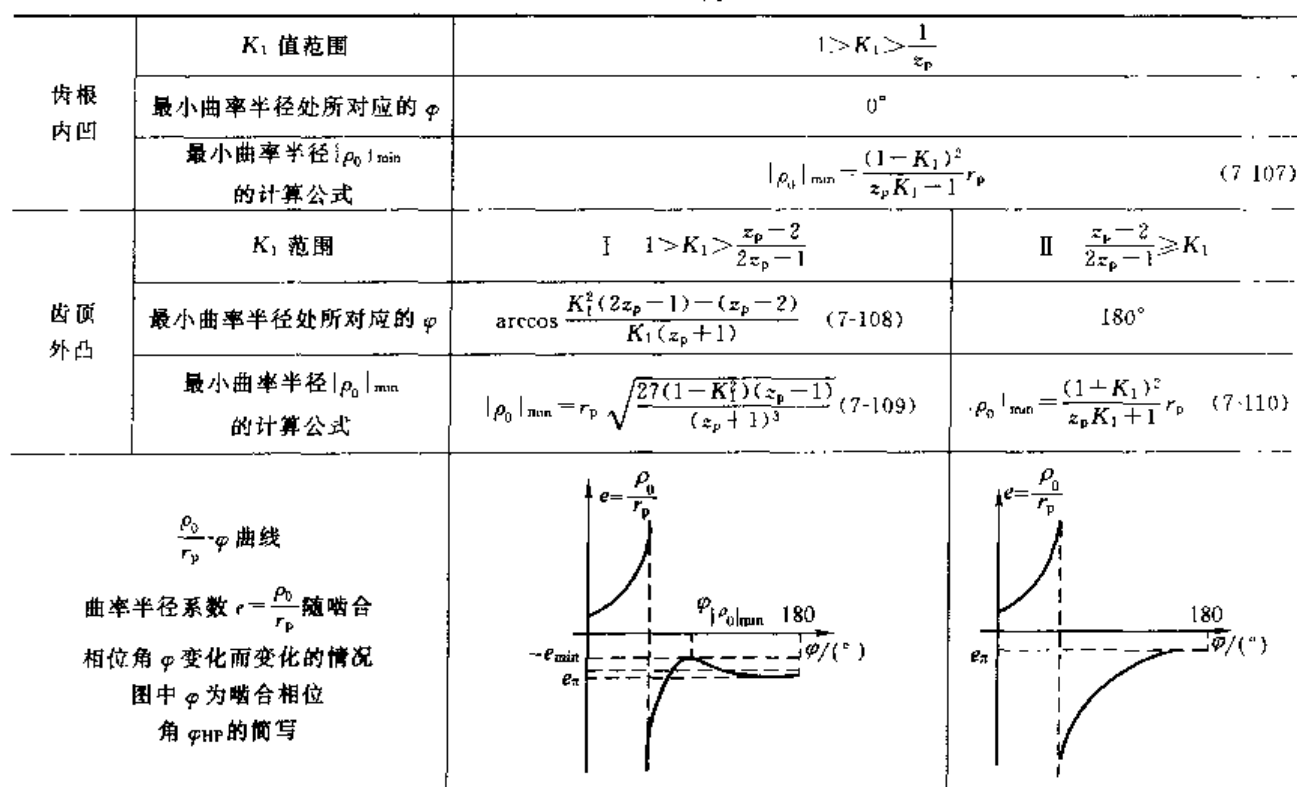 齿根内凹
K₁ 值范围
1>K₁>1/z_p
最小曲率半径处所对应的 φ
0°
最小曲率半径|ρ₀|min
的计算公式
|ρ₀|min=(1-K₁)²/(z_pK₁-1) r_p (7-107)
齿顶外凸
K₁ 范围
Ⅰ 1>K₁>(z_p-2)/(2z_p-1)
Ⅱ (z_p-2)/(2z_p-1)≥K₁
最小曲率半径处所对应的 φ
arccos (K₁²(2z_p-1)-(z_p-2))/(K₁(z_p+1)) (7-108)
180°
最小曲率半径|ρ₀|min
的计算公式
|ρ₀|min=r_p √(27(1-K₁²)(z_p-1)/(z_p+1)³) (7-109)
|ρ₀|min=(1+K₁)²/(z_pK₁+1) r_p (7-110)
ρ₀/r_p-φ 曲线
曲率半径系数 e=ρ₀/r_p 随啮合
相位角 φ 变化而变化的情况
图中 φ 为啮合相位
角 φHP的简写
e=ρ₀/r_p
φ|ρ₀|min 180
φ/(°)
-e_min
e_π
e=ρ₀/r_p
180
φ/(°)
e_π